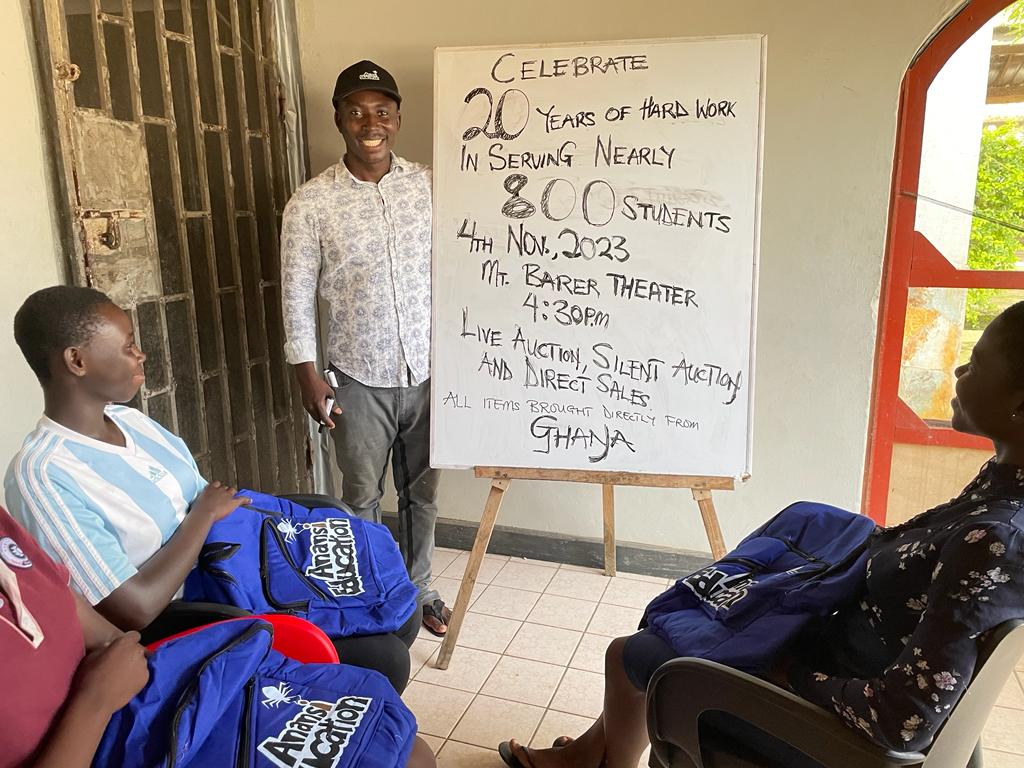 CELEBRATE
20 YEARS OF HARD WORK
IN SERVING NEARLY
800 STUDENTS
4TH NOV., 2023
MT. BAKER THEATER
4:30PM
LIVE AUCTION, SILENT AUCTION
AND DIRECT SALES
ALL ITEMS BROUGHT DIRECTLY FROM
GHANA
adidas
Anansi
Education
Anansi
Education
Anansi
Education